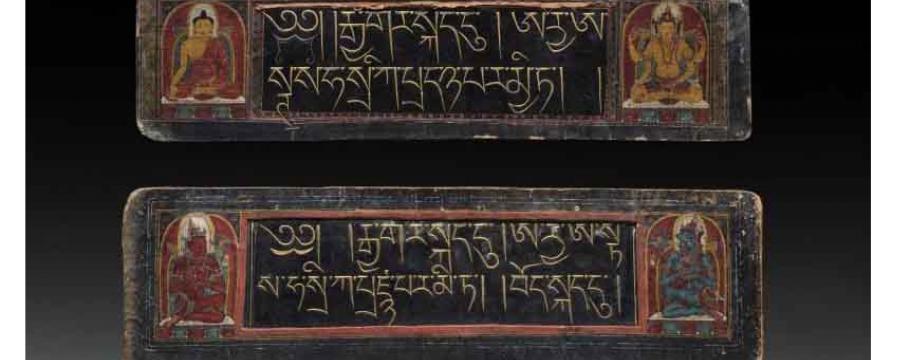 ༄༅། །རྒྱ་གར་སྐད་དུ། ཨ་རྱ་ཨ
སྟ་ས་ཧ་སྲི་ཀ་པྲ་ད་ཉ་པ་ར་མྱི་ཏ། །
༄༅། །རྒྱ་གར་སྐད་དུ། ཨ་རྱ་ཨ་སྟ
ས་ཧ་སྲི་ཀ་པྲ་ཛྙ་པ་ར་མི་ཏ། །བོད་སྐད་དུ།